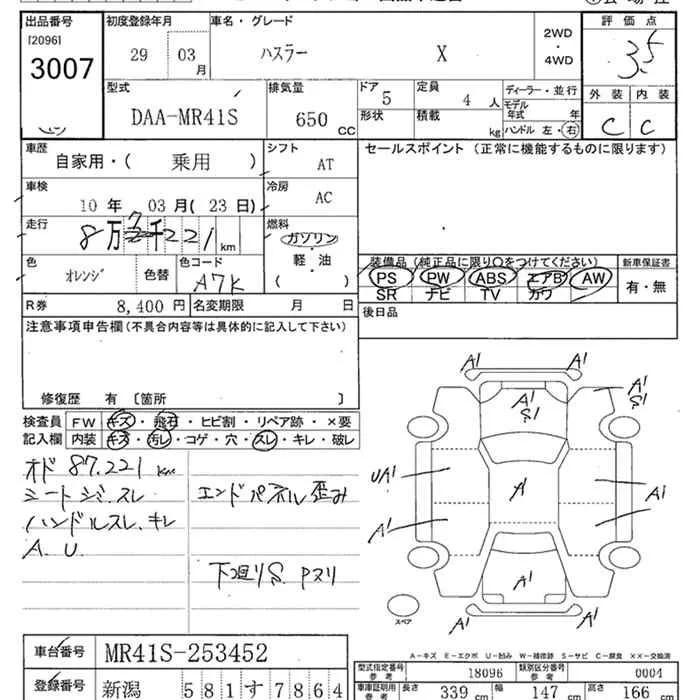 出品番号 初度登録年月 車名・グレード 評価点
[2096] 3007 29 03月 ハスラー X 2WD・4WD 3.5
型式 排気量 ドア 定員 ディーラー・並行 外装 内装
DAA-MR41S 650 CC 5 4人 モデル年式 年 C C
形状 積載 kg ハンドル 左・右
車歴 自家用・( 乗用 ) シフト AT セールスポイント (正常に機能するものに限ります)
車検 10年 03月(23日) 冷房 AC
走行 8万7千221km 燃料 ガソリン・軽・油 ( )
装備品 (純正品に限り○をつけてください) 新車保証書
色 オレンジ 色替 色コード A7K PS PW ABS エアB AW 有・無
SR ナビ TV カワ
R券 8,400円 名変期限 月 日 後日品
注意事項申告欄(不具合内容等は具体的に記入して下さい)
修復歴 有 〔箇所 〕
検査員 FW キズ・飛石・ヒビ割・リペア跡・×要
記入欄 内装 キズ・汚レ・コゲ・穴・スレ・キレ・破レ
オド 87.221km
シートシミ.スレ エンドパネル歪み
ハンドルスレ.キレ
A. U.
下廻りS. Pヌリ
A1 A1
A1 S1 A1 S1
UA1 A1 A1
A1 A1
A1 A1
スペア
A-キズ E-エクボ U-凹み W-補修跡 S-サビ C-腐食 ××-交換済
車台番号 MR41S-253452
型式指定番号 参考 18096 類別区分番号 参考 0004
登録番号 新潟 581す7864 車庫証明用参考 長さ 339cm 幅 147cm 高さ 166cm